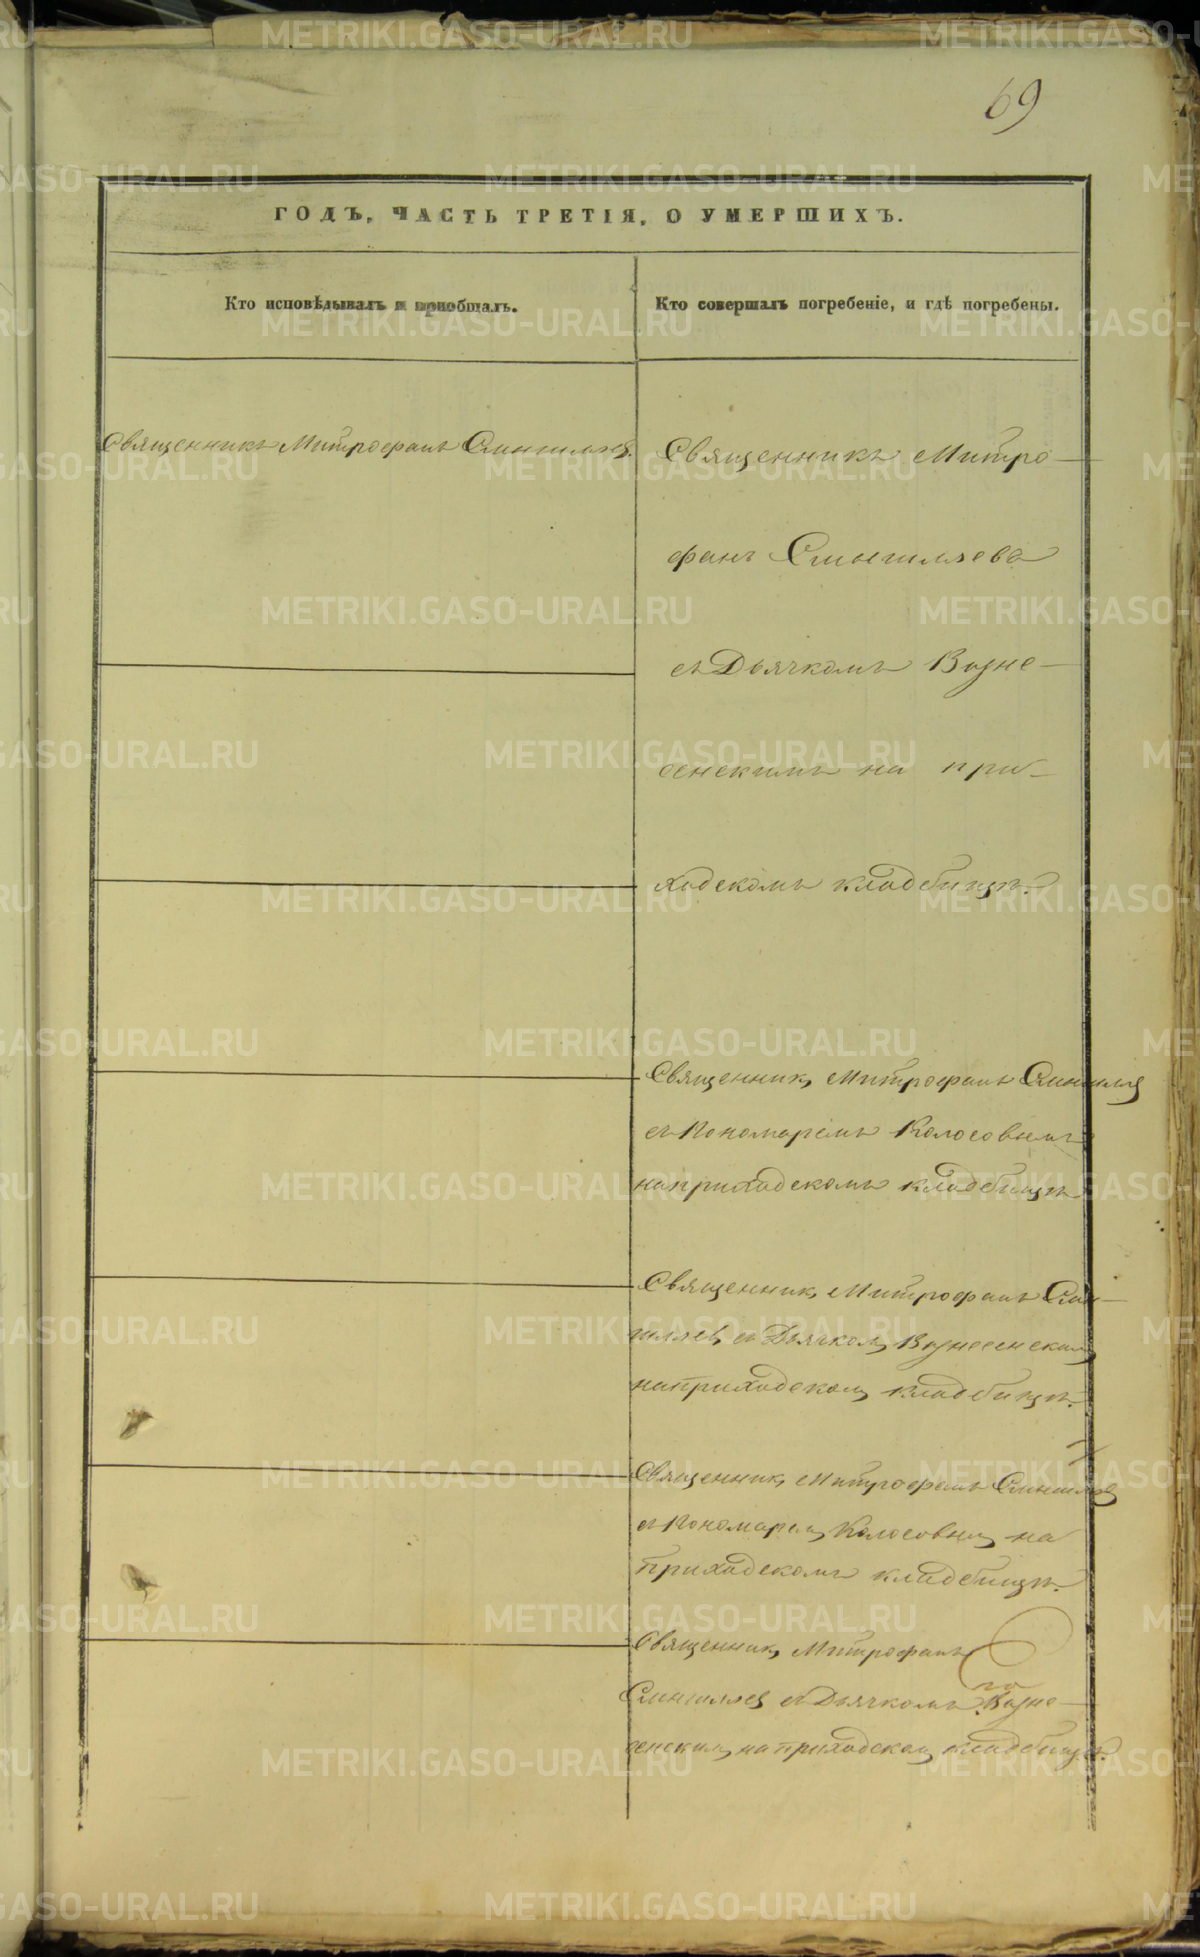 69
ГОДЪ, ЧАСТЬ ТРЕТІЯ, О УМЕРШИХЪ.
Кто исповѣдывалъ и приобщалъ.
Кто совершалъ погребеніе, и гдѣ погребены.
Священникъ Митрофанъ
Священникъ Митро-
фанъ
съ Дьячкомъ Возне-
сенскимъ на при-
ходскомъ кладбищѣ.
Священник Митрофанъ
съ Пономаремъ Колосовымъ
на приходскомъ кладбищѣ
Священник Митрофанъ
съ Дьячком Вознесенским
на приходском кладбищѣ.
Священник Митрофанъ
съ Пономарем Колосовым на
приходскомъ кладбищѣ.
Священник Митрофанъ
съ Дьячкомъ Возне-
сенским на приходском кладбищѣ.
METRIKI.GASO-URAL.RU